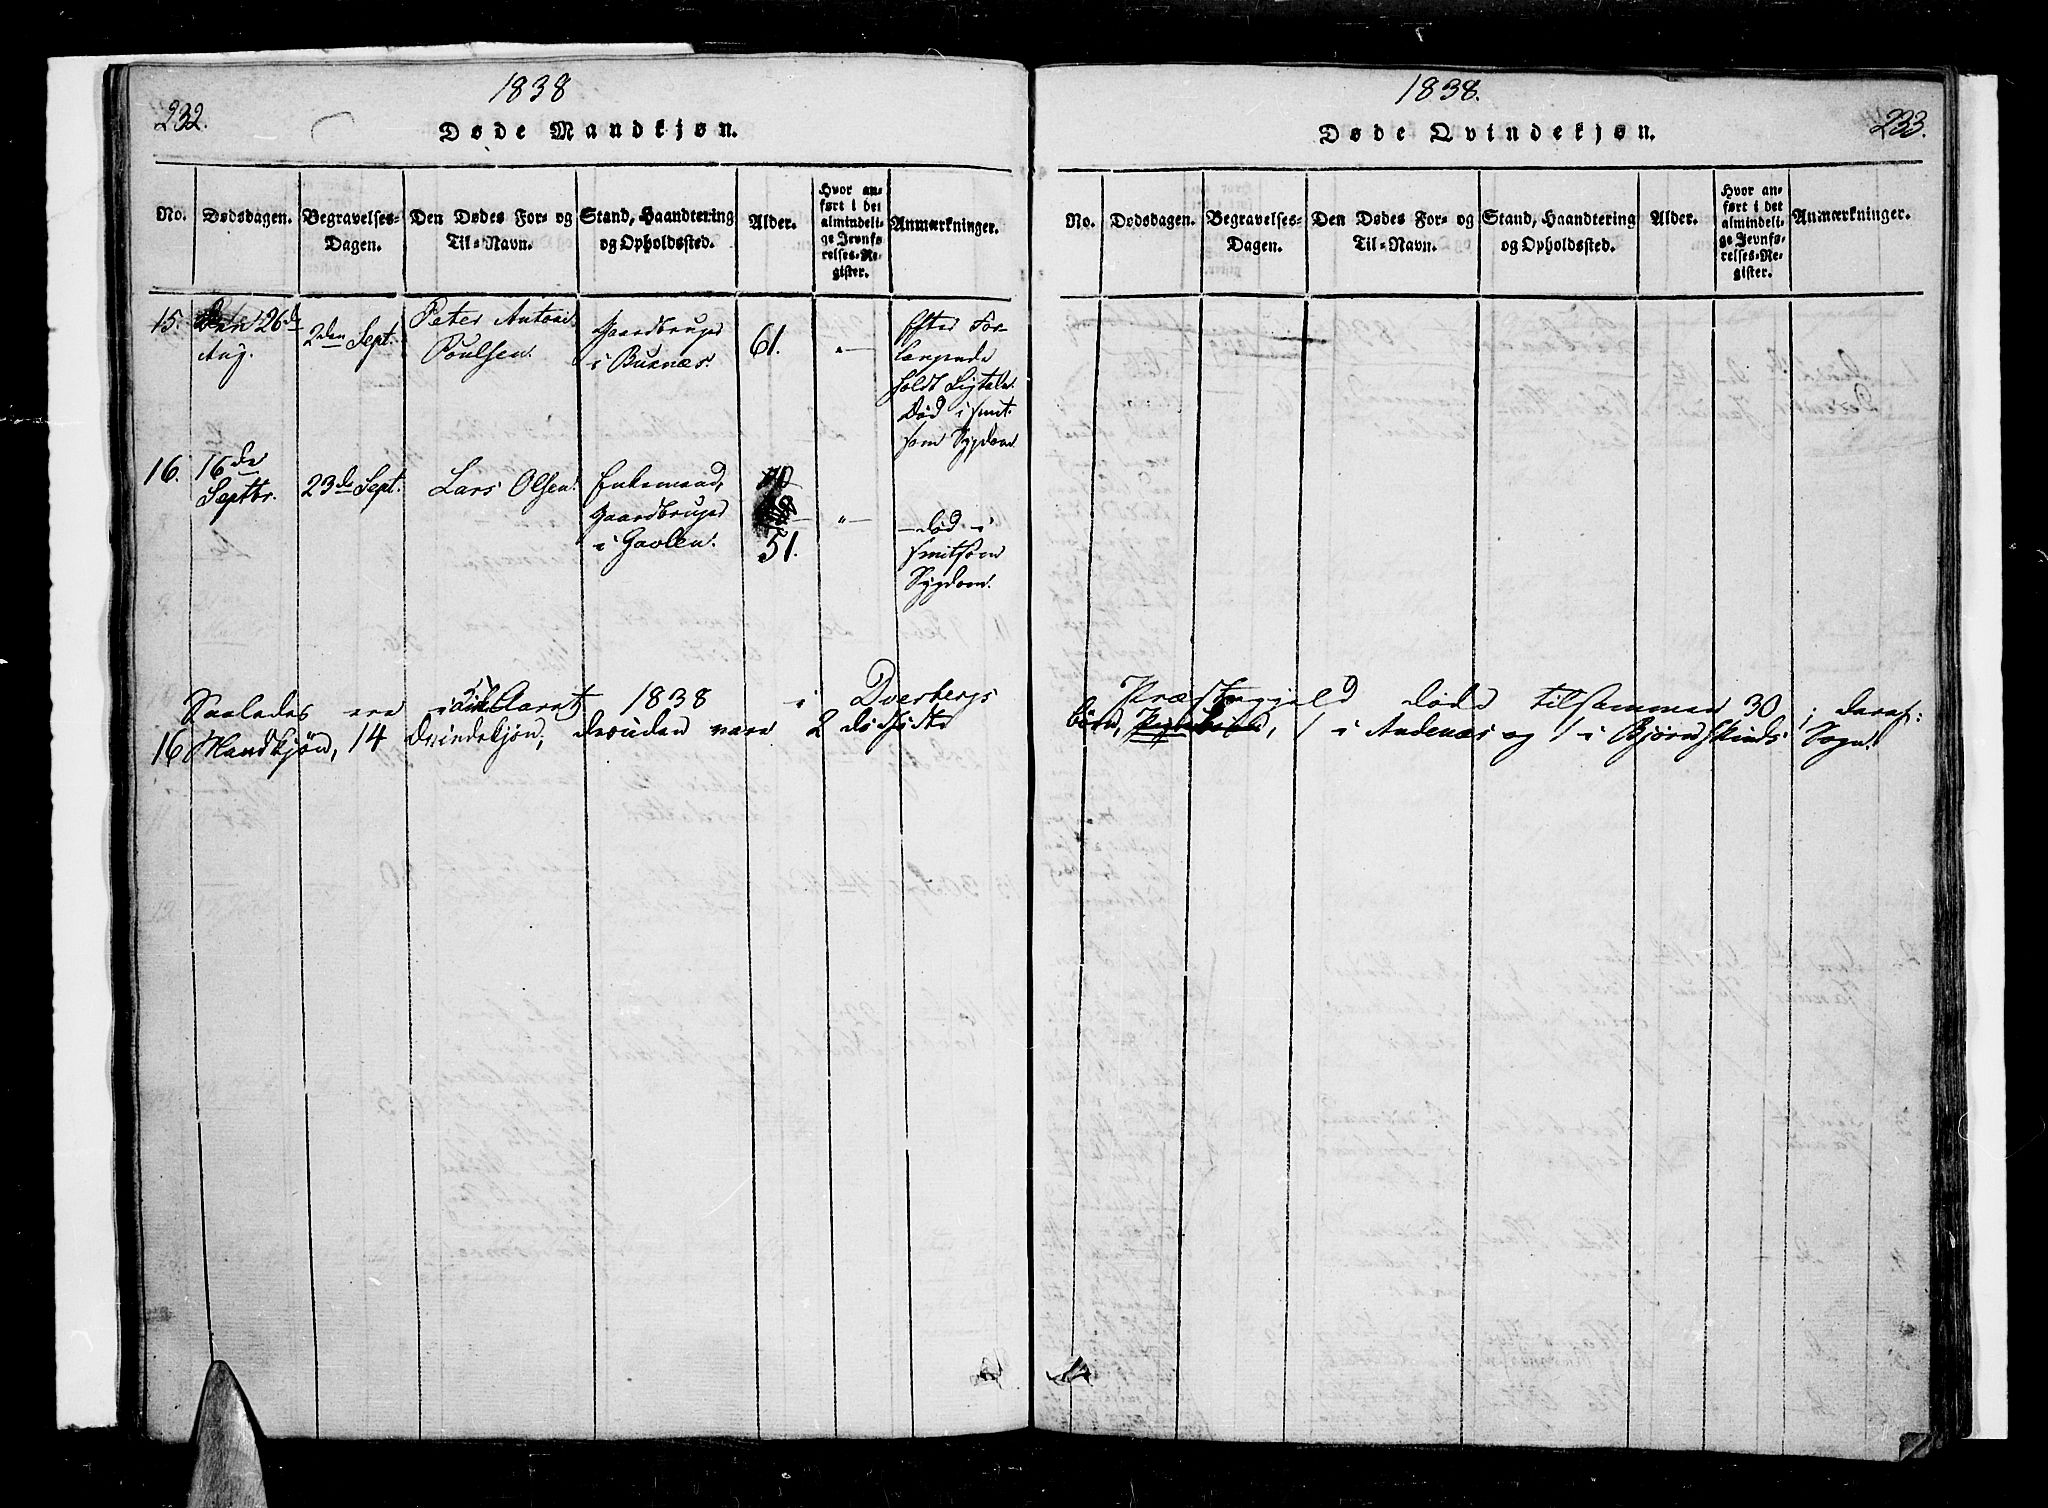 232.
1838
Døde Mandkjøn.
No.
Dødsdagen.
Begravelses-
Dagen.
Den Dødes For- og
Til-Navn.
Stand, Haandtering
og Opholdssted.
Alder.
Hvor an-
ført i det
almindeli-
ge Jevnfø-
relses-Re-
gister.
Anmærkninger.
15.
Den 26de
Aug.
2den Sept.
Peter Antoni
Poulsen.
Gaardbruger
i Buknæs.
61.
"
Efter For-
langende
holdt Ligtale.
Død i smit-
som Sygdom
16.
16de
Septbr.
23de Sept.
Lars Olsen.
Enkemand,
Gaardbruger
i Gavlen.
51.
"
Død i
smitsom
Sygdom.
Saaledes ere i Aaret 1838 i Dverbergs
16 Mandkjön, 14 Qvindekjön; desuden vare 2 dödfödte
1838.
233.
Døde Qvindekjøn.
No.
Dødsdagen.
Begravelses-
Dagen.
Den Dødes For- og
Til-Navn.
Stand, Haandtering
og Opholdssted.
Alder.
Hvor an-
ført i det
almindeli-
ge Jevnfø-
relses-Re-
gister.
Anmærkninger.
Præstegjeld döde tilsammen 30; deraf:
börn, 1 i Andenæs og 1 i Björnskinds Sogn.